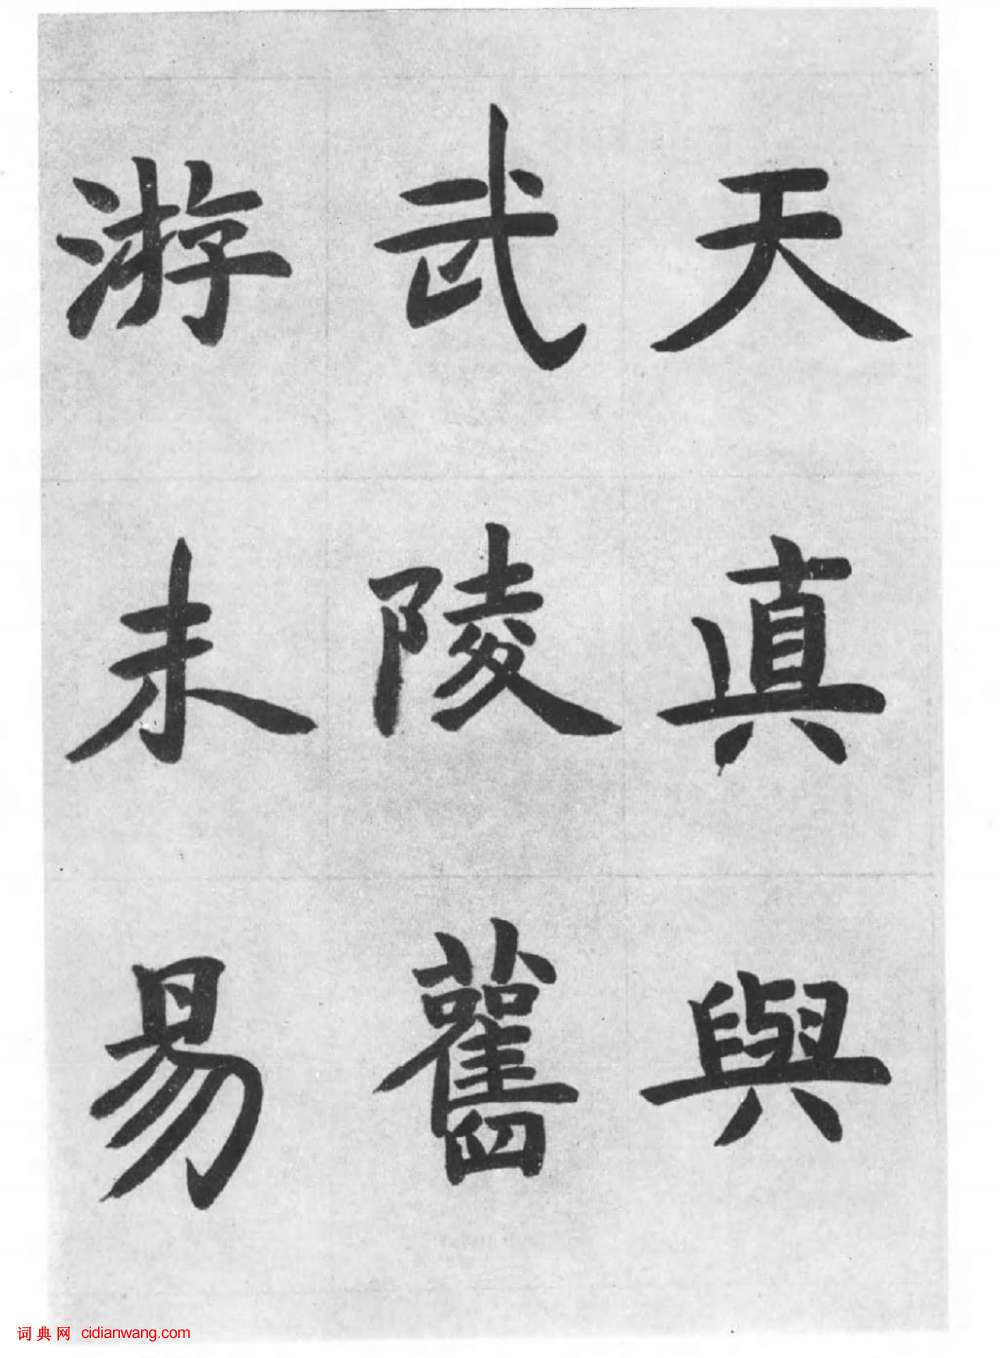 天真與
武陵舊
游未易
词典网 cidianwang.com